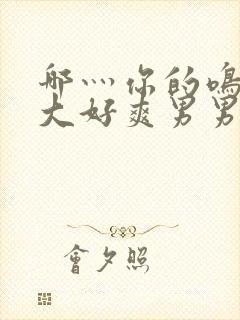 哪灬你的鳴
大好爽男男
會夕照